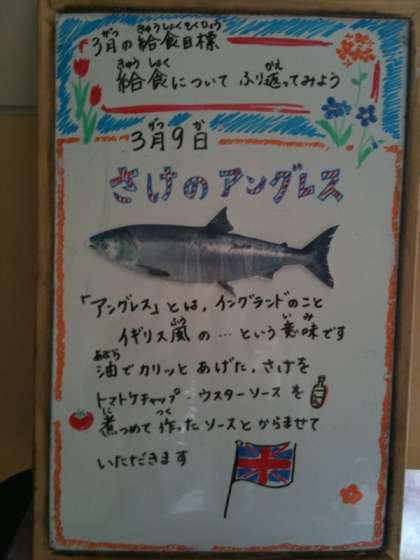 3月の給食目標
給食について ふり返ってみよう
3月9日
さけのアングレス
「アングレス」とは、イングランドのこと
イギリス風の…という意味です
油でカリッとあげた、さけを
トマトケチャップ・ウスターソースを
煮つめて作ったソースとからませて
いただきます